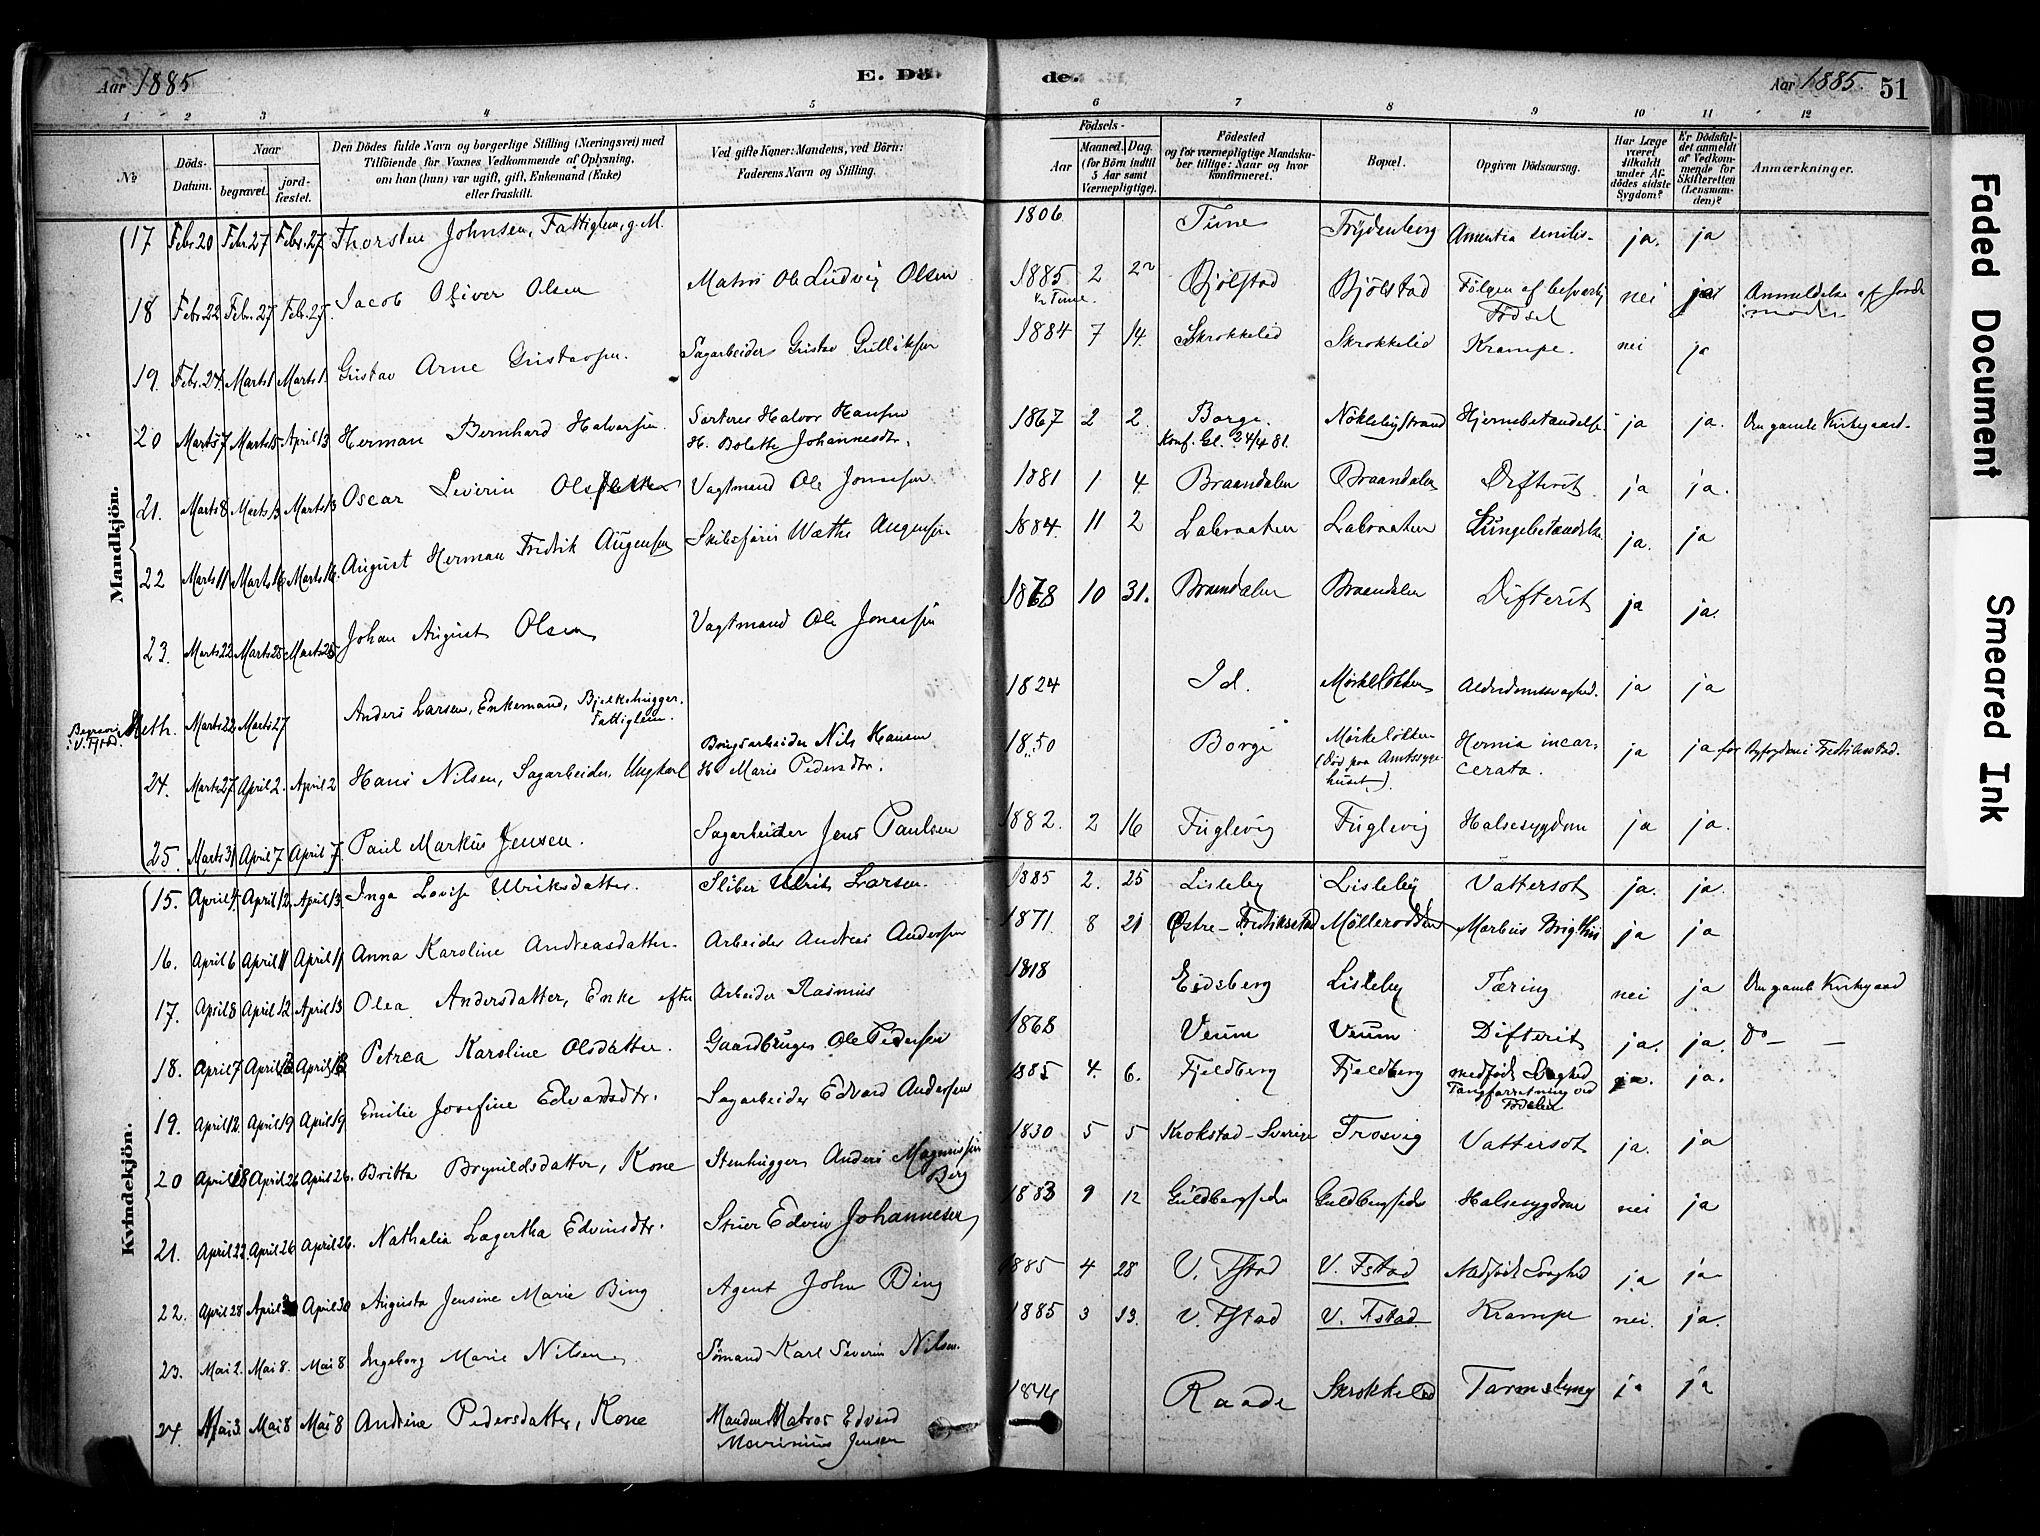 Aar 1885
E. Dö
de.
Aar 1885. 51
1 2 3 4 5 6 7 8 9 10 11 12
No
Döds-Datum.
Naar
begravet.
jord-fæstet.
Den Dödes fulde Navn og borgerlige Stilling (Næringsvei) med
Tilföiende for Voxnes Vedkommende af Oplysning,
om han (hun) var ugift, gift, Enkemand (Enke)
eller fraskilt.
Ved gifte Koner: Mandens, ved Börn:
Faderens Navn og Stilling.
Födsels-
Aar
Maaned. Dag.
(for Börn indtil
5 Aar samt
Værnepligtige).
Födested
og for værnepligtige Mandska-
ber tillige: Naar og hvor
konfirmeret.
Bopæl.
Opgiven Dödsaarsag.
Har Læge
været
tilkaldt
under Af-
dödes sidste
Sygdom?
Er Dödsfal-
det anmeldt
af Vedkom-
mende for
Skifteretten
(Lensman-
den)?
Anmærkninger.
Mandkjön.
17 Febr. 20 Febr. 27 Febr. 27 Thorsten Johnsen, Fattiglem, g. M. 1806 Tune Frydenberg Amentia senilis. ja. ja
18 Febr. 22 Febr. 27 Febr. 27. Jacob Oliver Olsen Matros Ole Ludvig Olsen 1885 2 22 Bjölstad Bjölstad Fölgen af besværlig Födsel nei ja Anmeldelse af Jordemoder
19. Febr. 24. Marts 1 Marts 1. Gustav Arne Gustavsen. Sagarbeider Gustav Gulliksen 1884 7 14. Skrokkelid Skrokkelid Krampe. nei ja
20 Marts 7 Marts 15 April 13 Herman Bernhard Halvorsen. Sorterer Halvor Hansen
H. Bolette Johannesdtr. 1867 2 2. Borge. Konf. Gl. 24/4 81. Nöklebystrand Hjernebetændelse. ja ja. Den gamle Kirkegaard.
21. Marts 8 Marts 13 Marts 13 Oscar Severin Vagtmand Ole Jonassen 1881 1 4. Braandalen Braandalen Difterit ja ja.
22 Marts 11 Marts 16 Marts 16. August Herman Fredrik Augensen Skibsförer Augensen 1884. 11 2 Labraaten Labraaten Lungebetændelse ja. ja
23. Marts 22 Marts 28 Marts 28 Johan August Olsen Vagtmand Ole Jonassen 10 31. Braandalen Braandalen Difterit ja ja.
Marts 22 Marts 27 Anders Larsen, Enkemand, Bjelkehugger. Fattiglem. 1824 Id. Mörkelökken Alderdomssvaghed. ja ja
24. Marts 27 April 2. April 2 Hans Nilsen, Sagarbeider, Ungkarl Brugsarbeider Nils Hansen
H. Marie Pedersdtr. 1850 Borge Mörkelökken (Död paa Amtssyge-huset). Hernia incarcerata. ja ja for Byfogden i Fredrikstad.
25. Marts 31 April 7 April 7. Paul Markus Jensen. Sagarbeider Jens Paulsen 1882. 2 16 Fuglevig Fuglevig Halsesygdom ja ja.
Kvindekjön.
15. April 4. April 12. April 13. Inga Lovise Ulriksdatter. Sliber Ulrik Larsen. 1885 2. 25 Lisleby Lisleby Vattersot ja. ja.
16. April 6 April 11 April 11 Anna Karoline Andreasdatter. Arbeider Andreas Andersen 1871. 8 21 Östre-Fredrikstad Mölleroddden Morbus Brigthii ja ja
17. April 8 April 12 April 13 Olea Andersdatter, Enke efter Arbeider Rasmus 1818 Eidsberg Lisleby Tæring nei ja Den gamle Kirkegaard
18. April 7 April 13 April 13 Petrea Karoline Olsdatter. Gaardbruger Ole Pedersen 1868 Veum Veum Difterit ja. ja. Do — —
19. April 12. April 19 April 19. Emilie Josefine Edvardsdtr. Sagarbeider Edvard Andersen 1885 4. 6. Fjeldberg Fjeldberg medfödt Svaghed Tangforretning ved Födselen ja. ja.
20 April 18 April 26 April 26. Britta Brynildsdatter, Kone Stenhugger Anders Magnussen Berg 1830 5 5 Krokstad-Sverige Trosvig Vattersot ja. ja
21. April 22. April 26 April 26. Nathalia Lagertha Edvinsdtr. Stuer Edvin Johannesen 1883 9 12 Guldbergsiden Guldbergsiden Halsesygdom nei ja
22. April 28 April 30 April 30 Augusta Jensine Marie Bing Agent John Bing 1885 4 28 V. Fstad V. Fstad Medfödt Svaghed ja ja
23. Mai 2. Mai 8. Mai 8 Ingeborg Marie Nilsen Sömand Karl Severin Nilsen. 1885 3 13. V. Fstad V. Fstad Krampe nei. ja.
24. Mai 3. Mai 8 Mai 8 Andrine Pedersdatter, Kone Manden Matros Edvard
Marinius Jensen 1844 Raade Skrokkelid ja ja
Faded Document
Smeared Ink